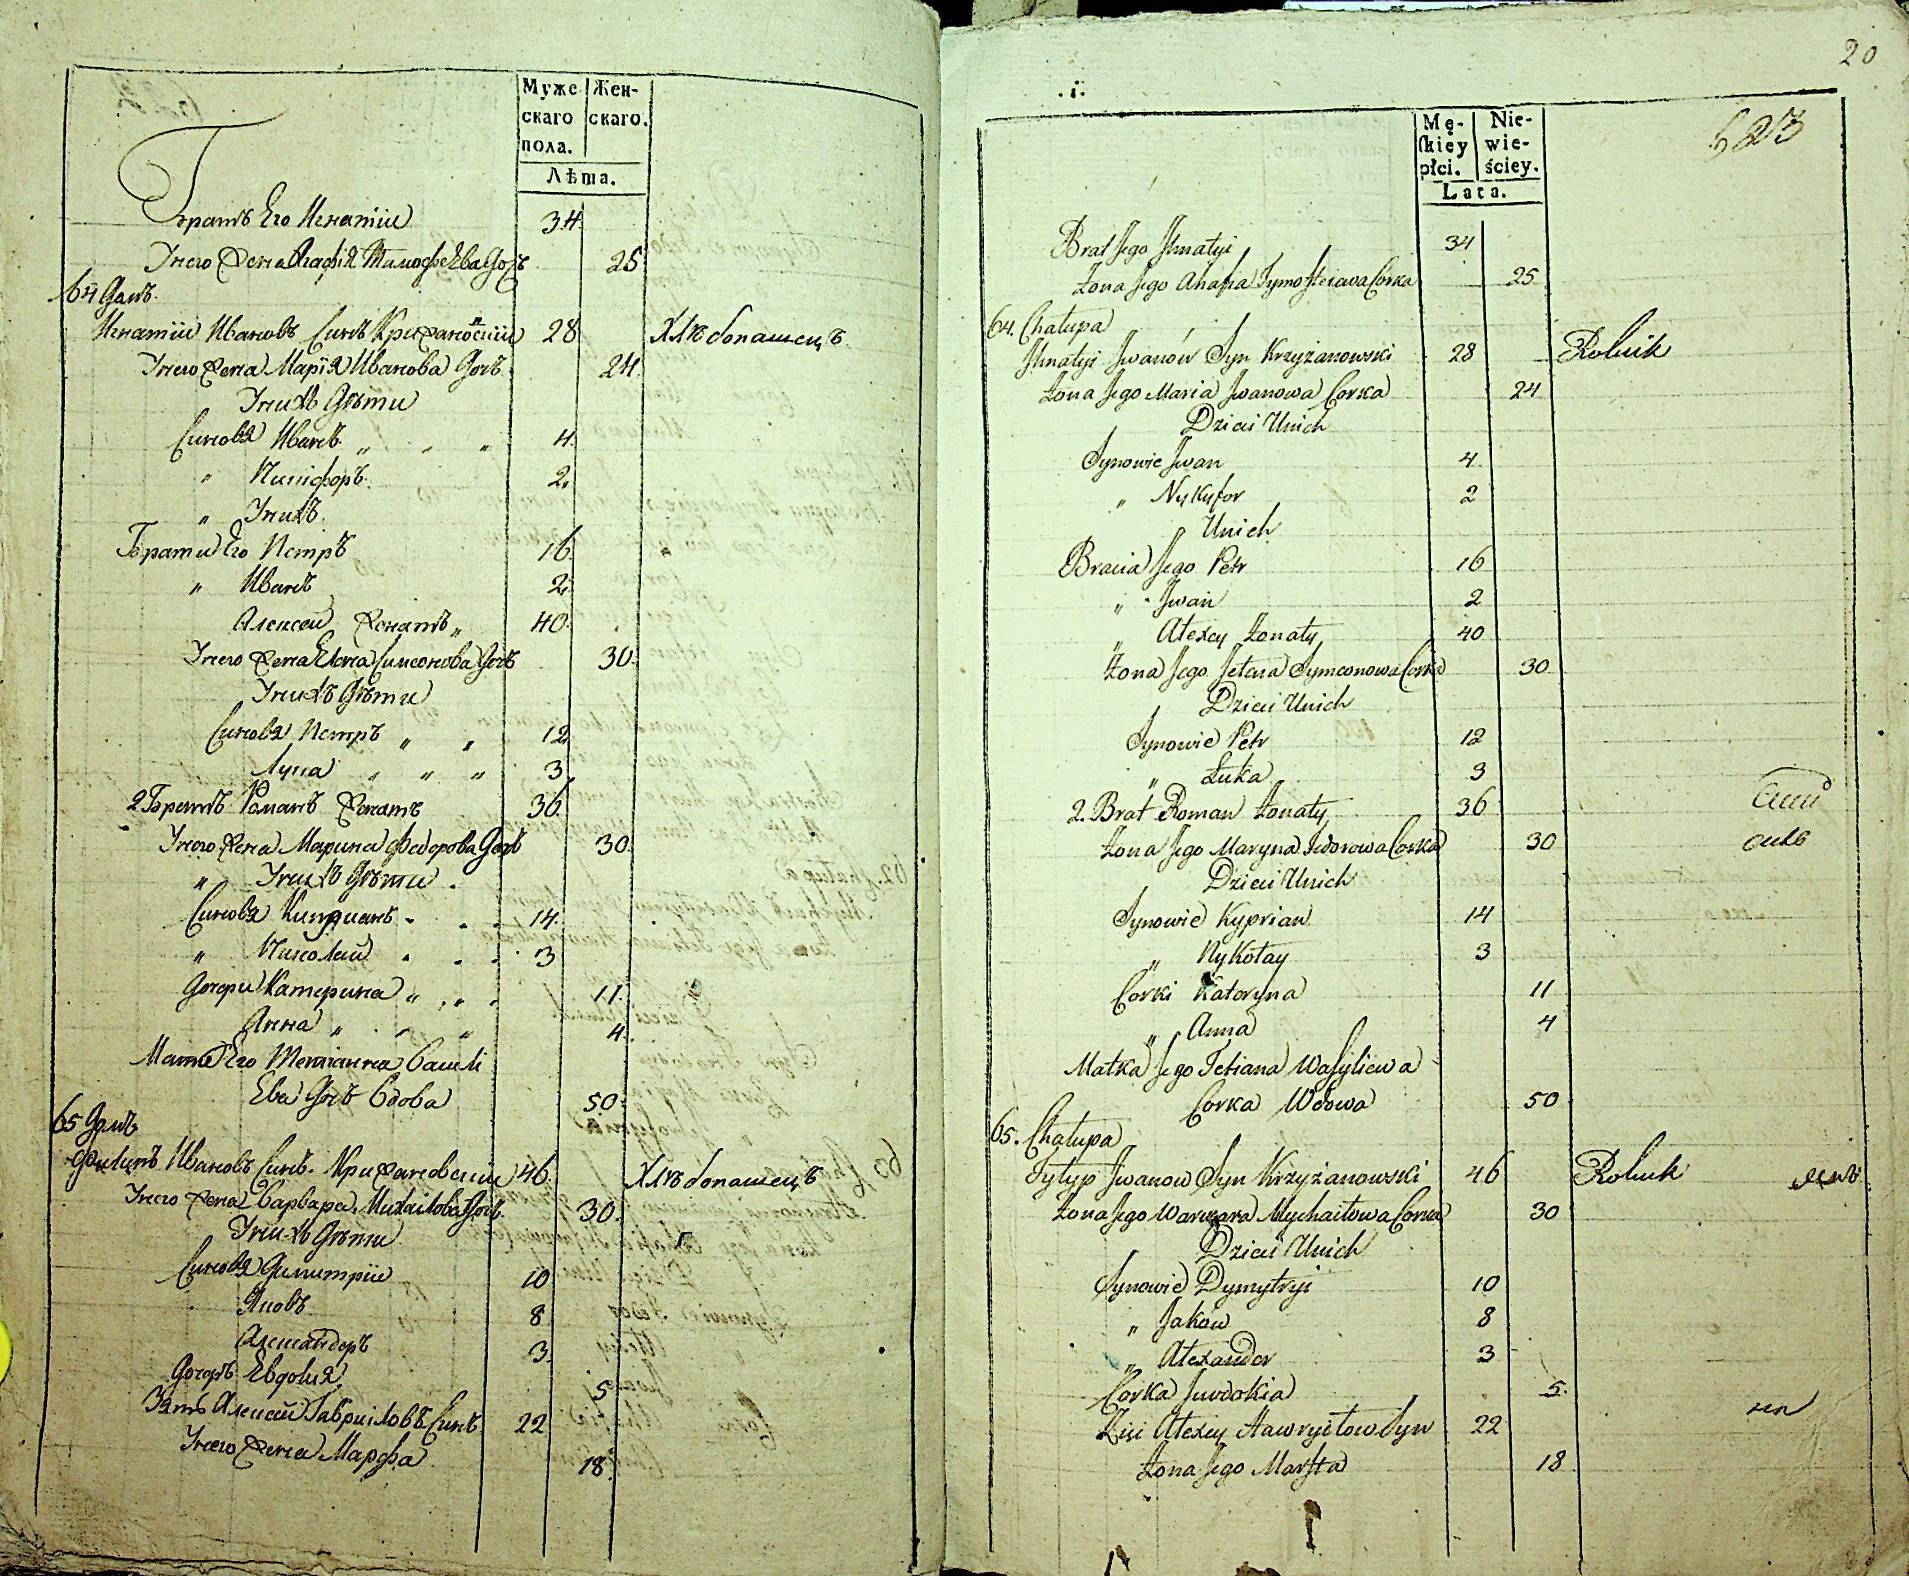 Муже
скаго
пола.
Жен-
скаго.
Лѣта.
Братъ Его Игнатіи 34
Унего Жена Агафія Тимофеева Дочь 25
64 Домъ
Игнатіи Ивановъ Синъ Крижановскіи 28 Хлѣбопашецъ
Унего Жена Марія Иванова Дочь 24
Унихъ Дѣти
Синовя Иванъ „ „ „ 4
„ Никифоръ 2
„ Унихъ
Брати Его Петръ 16
„ Иванъ 2
Алексей Женатъ „ 40
Унего Жена Елена Симеонова Дочь 30
Унихъ Дѣти
Синовя Петръ „ „ 12
Лука „ „ „ 3
2 Братъ Романъ Женатъ 36
Унего Жена Марина Федорова Дочь 30
„ Унихъ Дѣти
Синовя Киприанъ 14
„ Николай 3
Дочери Катерина „ „ „ 11
Анна „ „ 4
Мати Его Тетіанна Васили
Ева Дочь Вдова 50
65 Домъ
Филипъ Ивановъ Синъ Крижановскіи 46 Хлѣбопашецъ
Унего Жена Варвара Михайлова Дочь 30
Унихъ Дѣти
Синовя Димитріи 10
Яковъ 8
Александеръ 3
Дочеръ Евдокия 5
Зять Алексей Гавриловъ Синъ 22
Унего Жена Марфа 18
20
.i.
Mę-
skiey
płci.
Nie-
wie-
ściey.
Lata.
623
Brat Jego Jhnatyi 34
Żona Jego Ahafia Tymofteiawa Corka 25
64. Chałupa
Jhnatyi Jwanów Syn Krzyżanowski 28 Rolnik
Żona Jego Maria Jwanowa Corka 24
Dzieci Unich
Synowie Jwan 4
„ Nykyfor 2
Unich
Bracia Jego Petr 16
„ Jwan 2
„ Alexey Żonaty 40
Żona Jego Jelena Symeonowa Corka 30
Dzieci Unich
Synowie Petr 12
„ Łuka 3
2. Brat Roman Żonaty 36
Żona Jego Maryna Fedorowa Corka 30
Dzieci Unich
Synowie Kyprian 14
„ Nykołay 3
Corki Katoryna 11
„ Anna 4
Matka Jego Tetiana Wasyliewa
Corka Wdowa 50
65. Chałupa
Fylyp Jwanow Syn Krzyżanowski 46 Rolnik
Żona Jego Warwara Mychaiłowa Corka 30
Dzieci Unich
Synowie Dymytryi 10
„ Jaków 8
„ Alexander 3
Corka Juwdokia 5.
Zięć Alexey Hawryełow Syn 22
Żona Jego Marfta 18